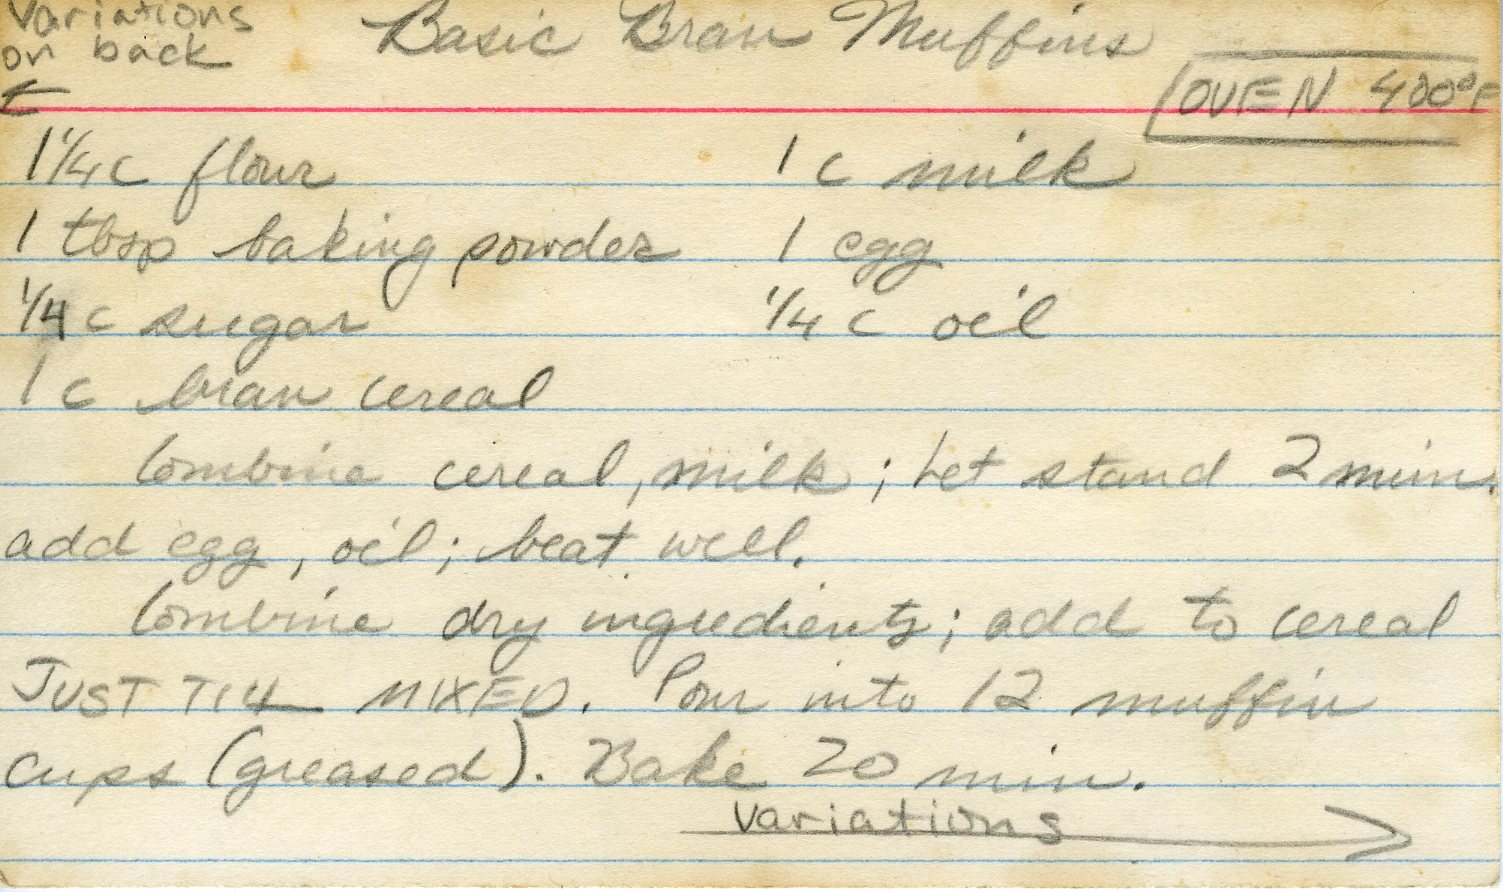 Variations
on back
Basic Bran Muffins
OVEN 400°F
1 1/4 c flour
1 c milk
1 tbsp baking powder
1 egg
1/4 c sugar
1/4 c oil
1 c bran cereal
Combine cereal, milk; let stand 2 min.
add egg, oil; beat well.
Combine dry ingredients; add to cereal
JUST TILL MIXED. Pour into 12 muffin
cups (greased). Bake 20 min.
Variations